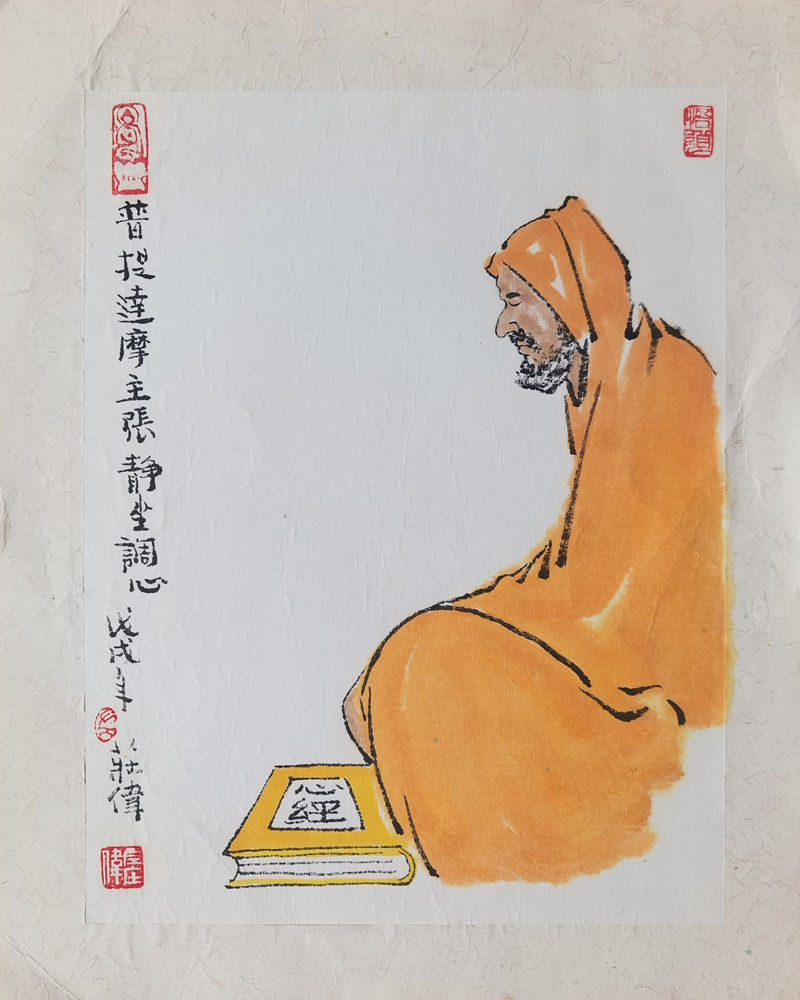 普提達摩主張靜坐調心
戊戌年
壯偉
心
經